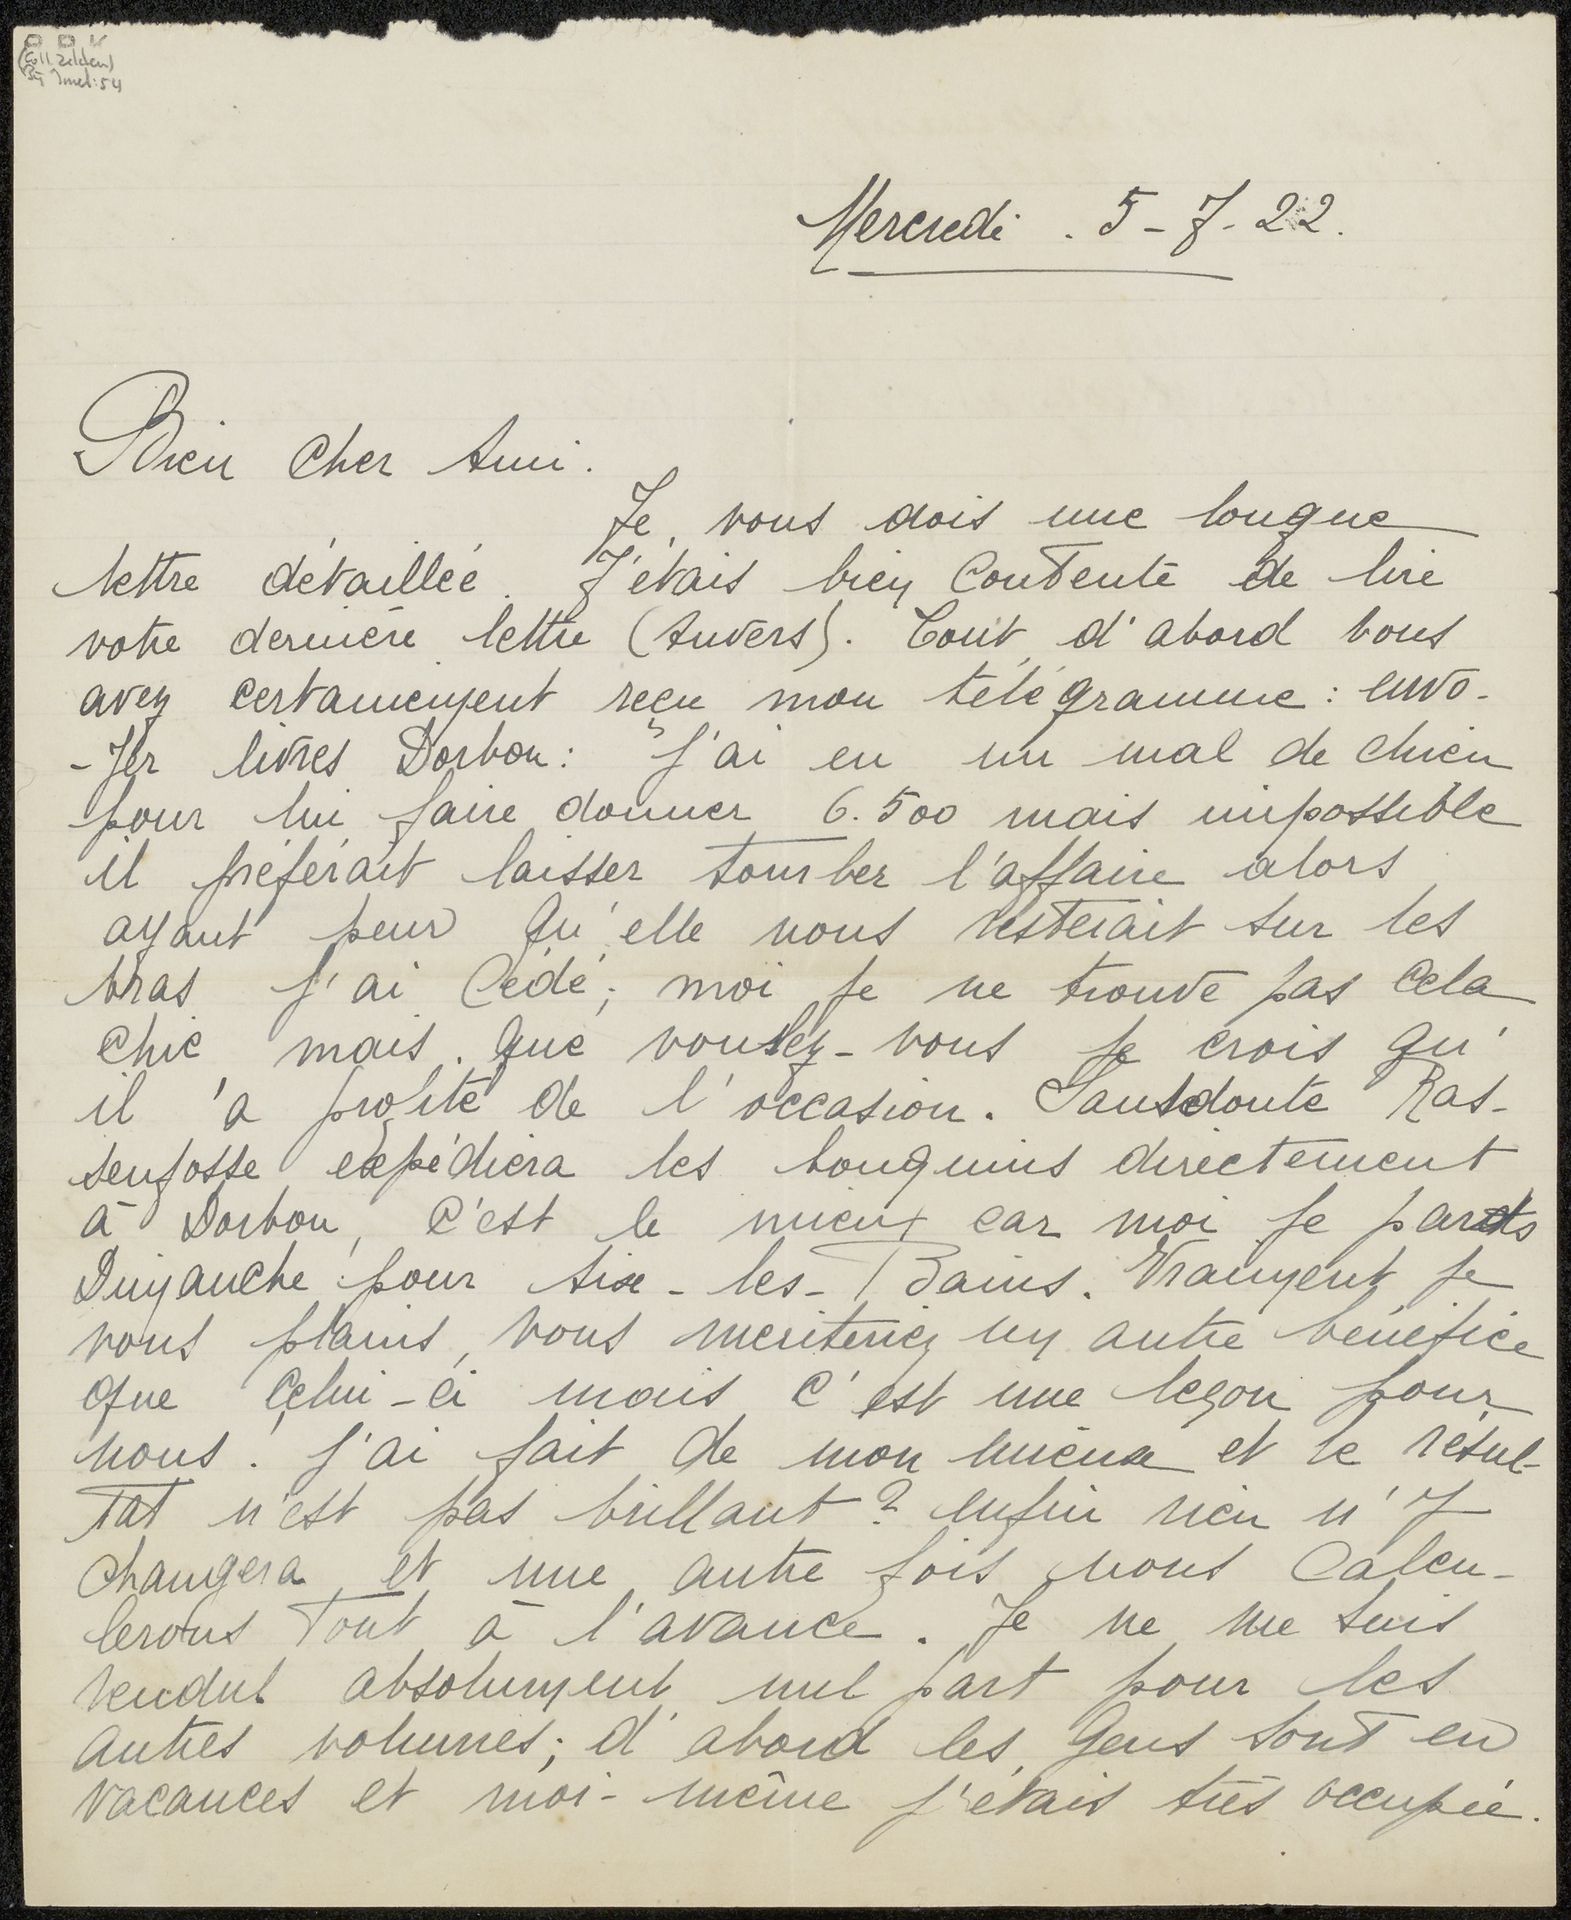 Mercredi . 5-7-22.
Bien Cher Ami.
Je vous dois une longue
lettre détaillée. J'étais bien Contente de lire
votre dernière lettre (Anvers). Tout d'abord vous
avez certainement reçu mon télégramme : envo-
-yer livres Dorbon : J'ai eu un mal de chien
pour lui faire donner 6.500 mais impossible
il préférait laisser tomber l'affaire alors
ayant peur qu'elle nous resterait sur les
bras j'ai Cédé; moi je ne trouve pas Cela
Chic mais. que voulez-vous je crois qu'
il 'a profité de l'occasion. Sansdoute Ras-
senfosse expédiera les bouquins directement
à Dorbon, C'est le mieux car moi je pards
Dimanche pour Aix-les-Bains. Vraiment je
vous plains, vous meriteriez un autre bénéfice
que Celui-ci mais C'est une leçon pour
nous. J'ai fait de mon mieux et le résul-
tat n'est pas brillant? enfin rien n'y
changera et une autre fois nous Calcu-
lerons Tout à l'avance. Je ne me suis
rendut absolument nul part pour les
autres volumes; d'abord les Gens sont en
vacances et moi-même j'étais très occupée.